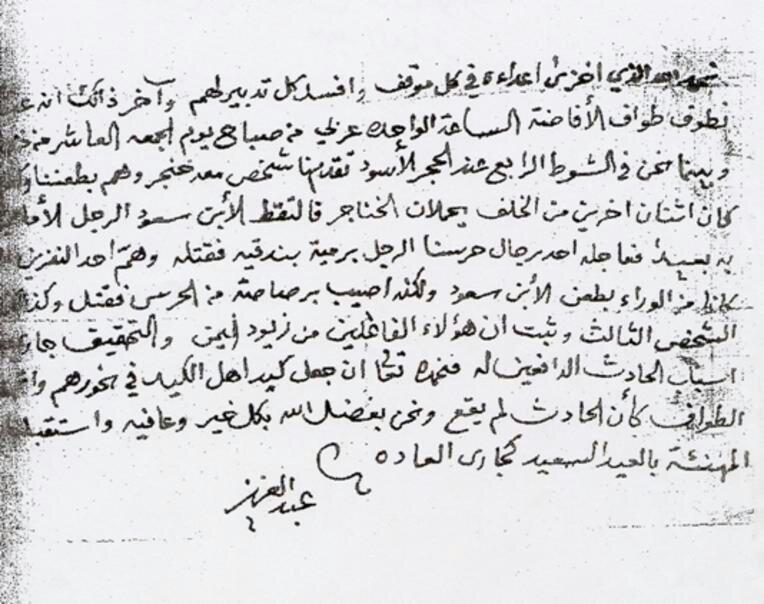 نحمد الله الذي اخزى اعداءه في كل موقف وافسد كل تدبير لهم وآخر ذالك انه
نطوف طواف الأفاضة الساعة الواحده عربي من صباح يوم الجمعه العاشر من
وبينما نحن في الشوط الرابع عند الحجر الأسود تقدم منا شخص معه خنجر وهم بطعننا
كان اثنان اخرين من الخلف يحملان الخناجر فالتقط الأبن سعود الرجل
به بعيداً فعاجله احد رجال حرسنا الرجل برمية بندقيه فقتله وهمّ احد النفرين
كانا من الوراء بطعن الأبن سعود ولكنه اصيب برصاصة من الحرس فقتل
الشخص الثالث وثبت ان هؤلاء الفاعلين من زيود اليمن والتحقيق
اسباب الحادث الدافعين له فنحمده تعالى ان جعل كيد اهل الكيد في نحورهم
الطواف كأن الحادث لم يقع ونحن بفضل الله بكل خير وعافيه
المهنئة بالعيد السعيد كجاري العاده
عبد العزيز